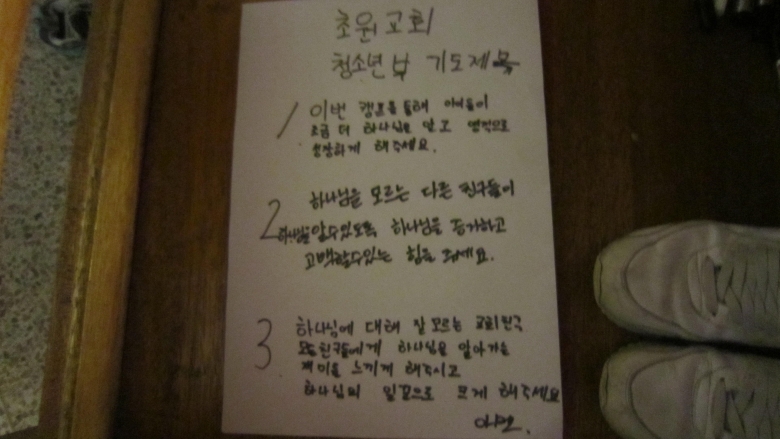 초원교회
청소년부 기도제목
1 이번 캠프를 통해 아이들이
조금 더 하나님을 알고 영적으로
성장하게 해주세요.
하나님을 모르는 다른 친구들이
2 하나님을 알수있도록 하나님을 증거하고
고백할수있는 힘을 주세요.
3 하나님에 대해 잘 모르는 교회친구
모든친구들에게 하나님을 알아가는
재미를 느끼게 해주시고
하나님의 일꾼으로 크게 해주세요
아멘.